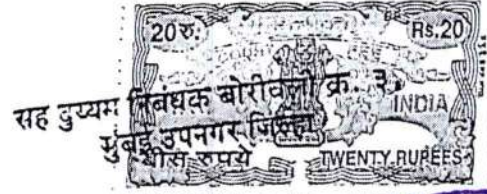 20रु. Rs.20
सह दुय्यम निबंधक बोरीवली क्र. ३,
INDIA
मुंबई उपनगर जिल्हा
बीस रुपये TWENTY RUPEES